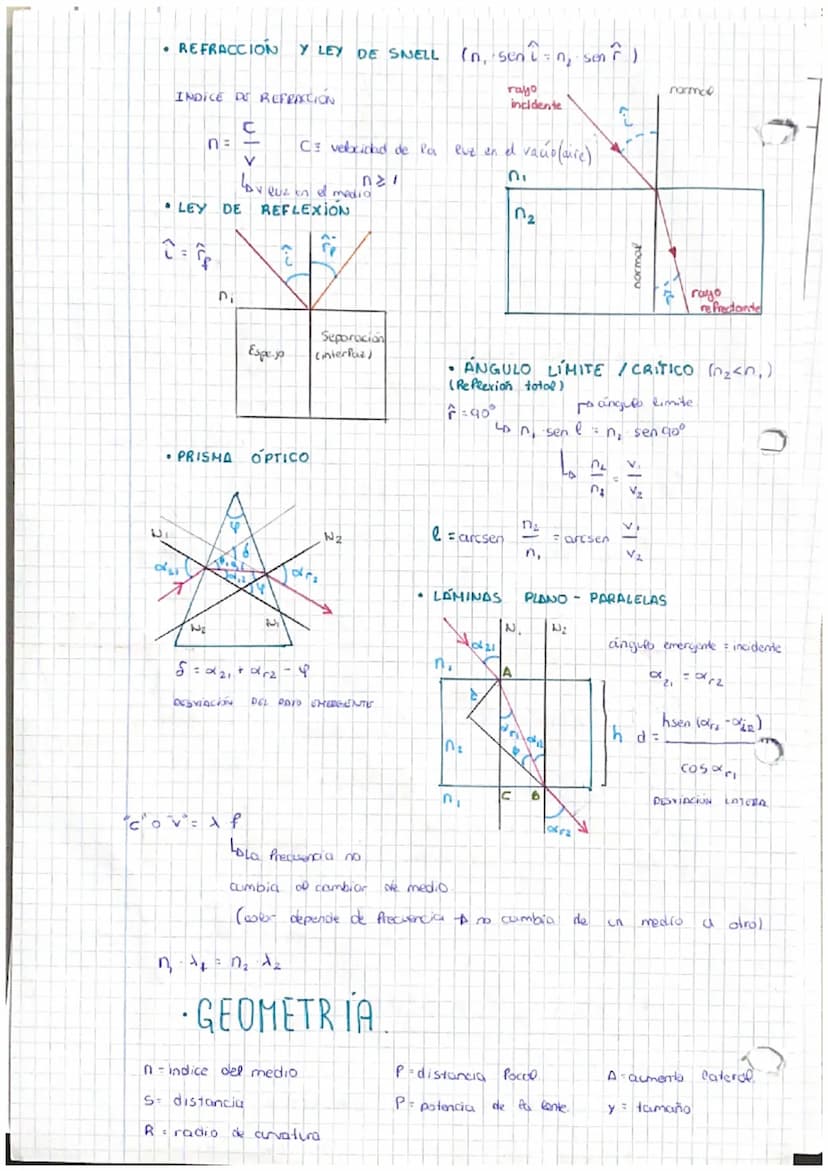 • REFRACCIÓN Y LEY DE SNELL (n₁ · sen î = n₂ · sen r̂)
INDICE DE REFRACCIÓN
n = c / v
C ≡ velocidad de la luz en el vacío (aire)
n ≥ 1
↳ v luz en el medio
rayo incidente
normal
î
n₁
n₂
normal
r̂
rayo refractante
• LEY DE REFLEXIÓN
î = r̂f
î
r̂f
n₁
Espejo
Separación (interfaz)
• ÁNGULO LÍMITE / CRÍTICO (n₂ < n₁)
(Reflexión total)
r̂ = 90°
ángulo límite
↳ n₁ sen l = n₂ sen 90°
↳ n₂ / n₁ = v₁ / v₂
l = arcsen n₂ / n₁ = arcsen v₁ / v₂
• PRISMA ÓPTICO
φ
N₁
N₂
δ
αr₂
φ
N₂
N₁
δ = α₂₁ + αr₂ - φ
DESVIACIÓN DEL RAYO EMERGENTE
• LÁMINAS PLANO - PARALELAS
N₁
N₂
α₂₁
n₁
A
n₂
h
C
B
n₁
αr₂
ángulo emergente = incidente
α₂₁ = αr₂
d = h sen (αr₁ - αi₂) / cos αr₁
DESVIACIÓN LATERA
"c" o "v" = λ f
↳ La frecuencia no
cambia al cambiar de medio
(color depende de frecuencia → no cambia de un medio a otro)
n₁ · λ₁ = n₂ · λ₂
· GEOMETRÍA
n = indice del medio
f = distancia focal
A = aumento lateral
S = distancia
P = potencia de la lente
y = tamaño
R = radio de curvatura